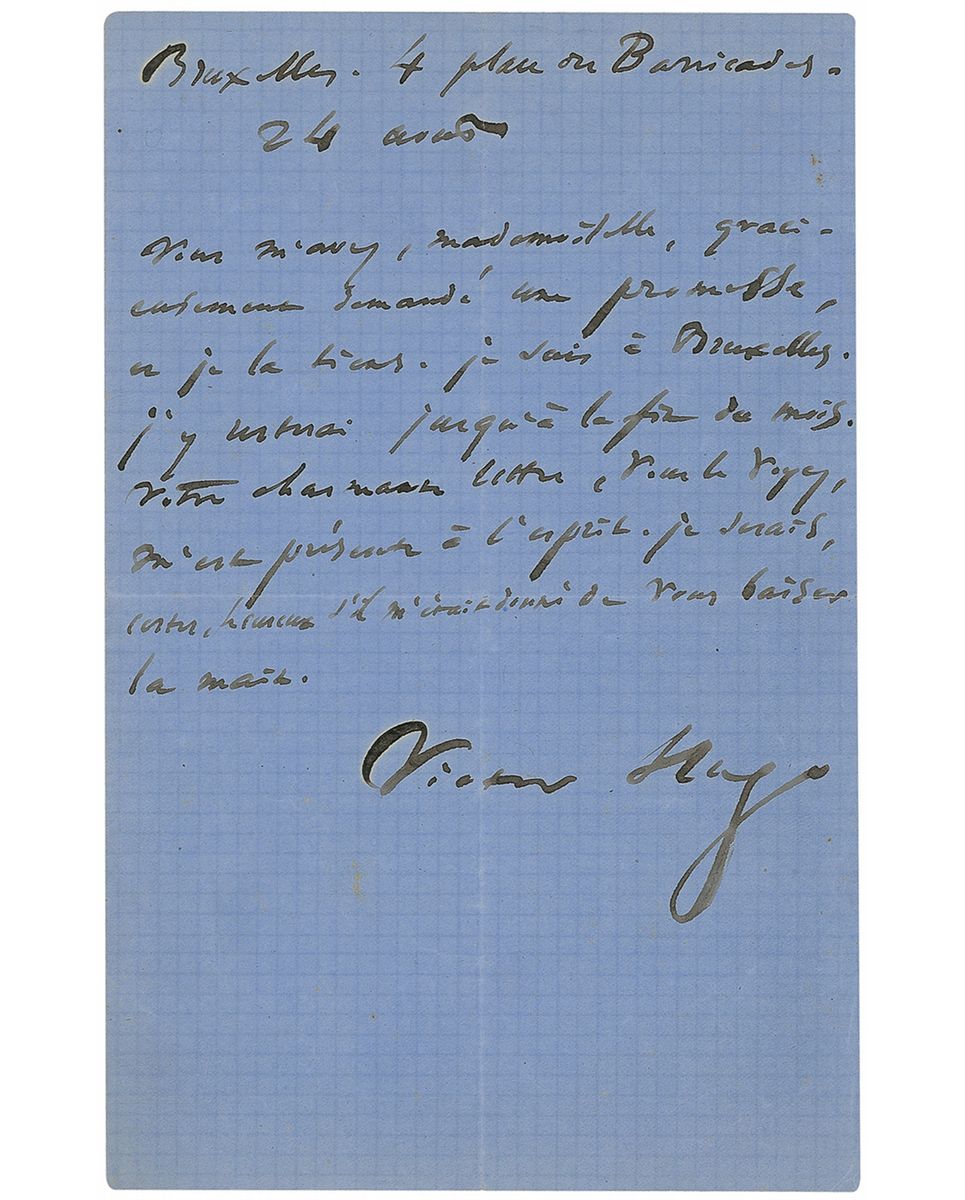 Bruxelles. 4 place des Barricades.
24 août
Vous m'avez, mademoiselle, graci-
eusement demandé une promesse,
et je la tiens. je suis à Bruxelles.
j'y resterai jusqu'à la fin du mois.
Votre charmante lettre, vous le voyez,
m'est présente à l'esprit. je serais,
certes, heureux s'il m'était donné de vous baiser
la main.
Victor Hugo